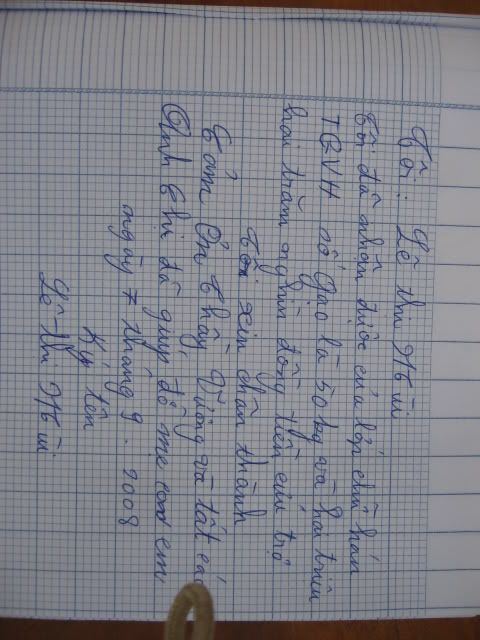 Tôi: Lê thị Mũi
tôi đã nhận được của lớp chữ hán
TQVH số gạo là 50kg và hai triệu
hai trăm nghìn đồng tiền cứu trợ
tôi xin chân thành
Cảm Ơn thầy Vương và tất cả
Anh Chị đã giúp đỡ mẹ con em
ngày 7 tháng 9. 2008
Ký tên
Lê thị Mũi